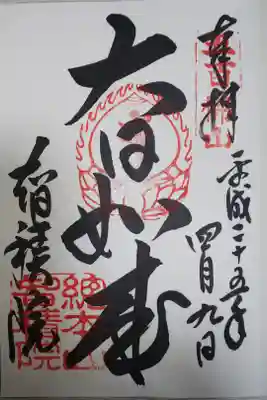 奉拝
平成二十五年
四月九日
大日如来
智積院
總本山
智積院